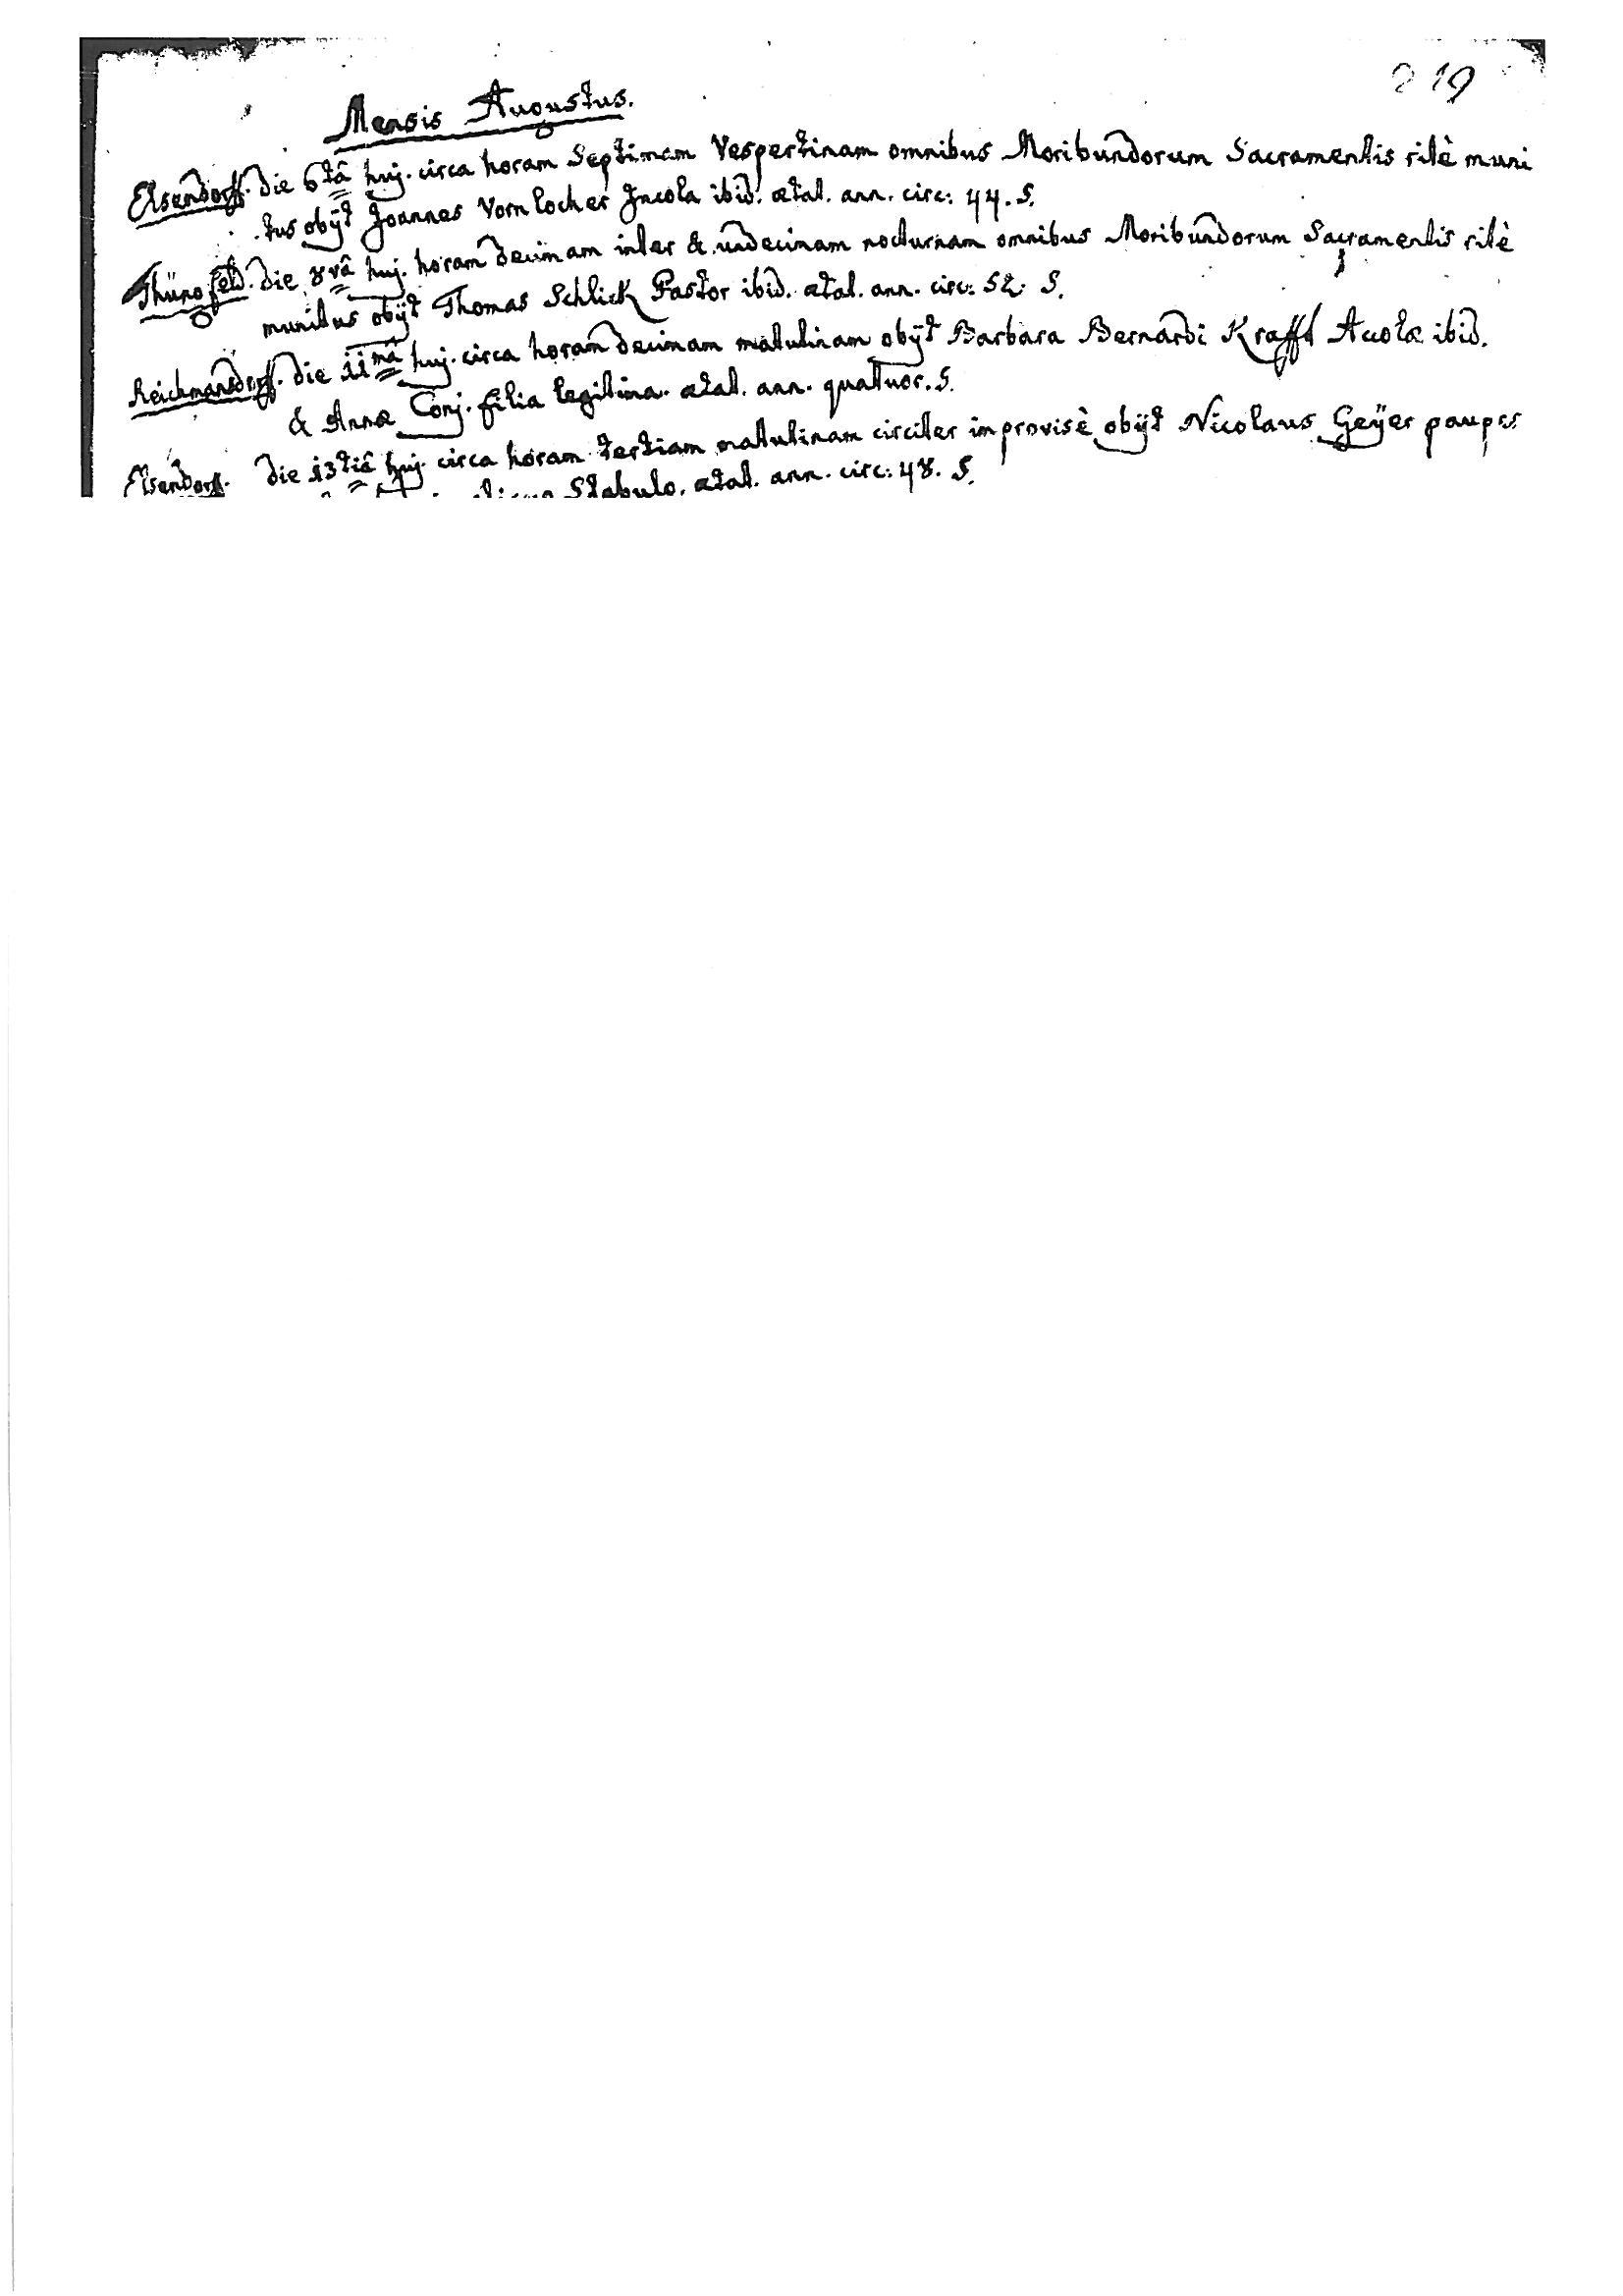 219
Mensis Augustus.
Elsendorff. die 6tâ huj. circa horam Septimam Vespertinam omnibus Moribundorum Sacramentis ritè muni
tus obijt Joannes Vornlocher Incola ibid. ætat. ann. circ: 44. S.
Thüngfeld. die 8vâ huj. horam decimam inter & undecimam nocturnam omnibus Moribundorum Sacramentis ritè
munitus obijt Thomas Schlick Pastor ibid. ætat. ann. circ: 52. S.
Reichmansdorff. die 11mâ huj. circa horam decimam matutinam obijt Barbara Bernardi Krafft Accolæ ibid.
& Annæ Conj. filia legitima. ætat. ann. quatuor. S.
Elsendorff. die 13tiâ huj. circa horam tertiam matutinam circiter improvisè obijt Nicolaus Geÿer pauper
Stabulo. ætat. ann. circ: 48. S.